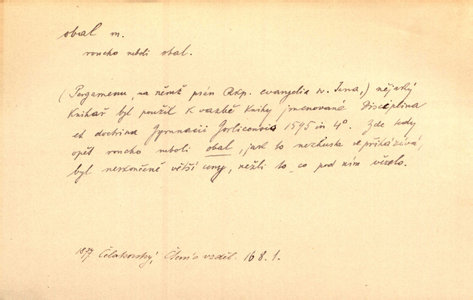 obal m.
roucho neboli obal.
(Pergamenu, na němž psán Rkp. evangelia sv. Jana,) nějaký
knihař byl použil k vazbě knihy jmenované Disciplina
et doctrina Gymnasii Gorlicensis 1595 in 4°. Zde tedy
opět roucho neboli obal, jak to nezhusta se přihází,
byl neskončeně větší ceny, nežli to co pod ním vězelo.
1877 Čelakovský, Čten. o vzděl. 168.1.